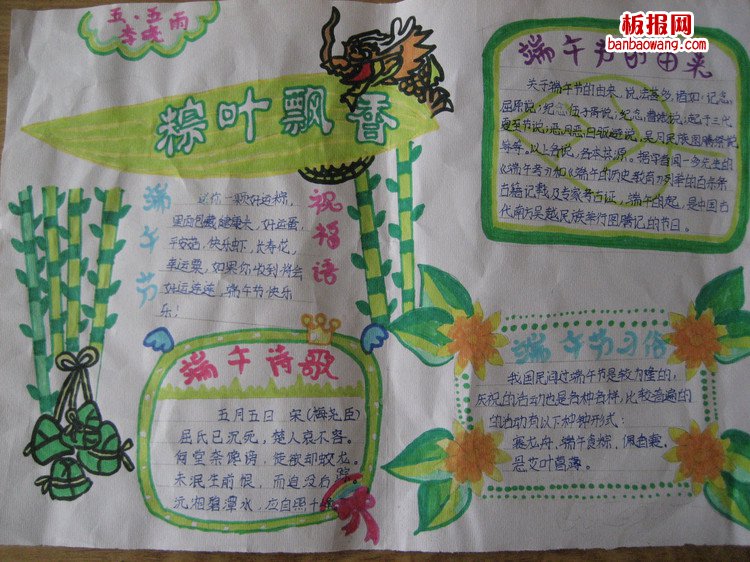 五·五雨
李晓
板报网
banbaowang.com
粽叶飘香
端午节
祝福语
送你一颗好运粽,
里面包藏健康长、好运蛋,
平安菇,快乐虾,长寿花,
幸运粟,如果你收到将会
好运连连,端午节快乐
乐!
端午诗歌
五月五日 宋(梅尧臣)
屈氏已沉死,楚人哀不容。
何尝奈谗谤,徒欲却蛟龙。
未泯生前恨,而追没后踪
沅湘碧潭水,应自照千
端午节的由来
关于端午节的由来,说法甚多,诸如:纪念
屈原说;纪念伍子胥说;纪念曹娥说;起于三代
夏至节说;恶月恶日驱避说,吴月民族图腾祭说
等等。以上各说,各本其源。据学者闻一多先生的
《端午考》和《端午的历史教育》列举的百余条
古籍记载及专家考古证,端午的起,是中国古
代南方吴越民族举行图腾记的节日。
端午节习俗
我国民间过端午节是较为隆的,
庆祝的活动也是各种各样,比较普遍的
的活动有以下种种形式:
赛龙舟、端午食粽、佩香囊、
悬艾叶菖蒲。